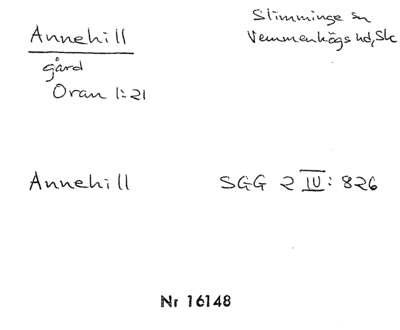 Annehill
Slimminge sn
Vemmenhögs hd, Sk
gård
Oran 1:21
Annehill
SGG 2 IV: 826
Nr 16148